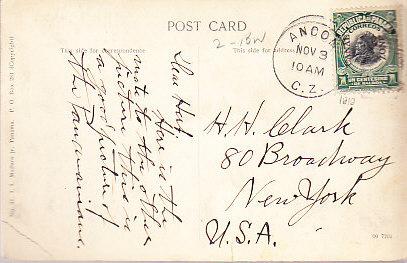 POST CARD
This side for correspondence
This side for address
2-15W
ANCON
NOV 3
10 AM
C. Z.
CORREOS
1910
Dear Hat
Here is the
mate to the other
picture this is
a good picture of
the Panamanians.
H. H. Clark
80 Broadway
New York
U.S.A.
No. 11. I. L. Maduro Jr. Panama. P. O. Box 281 (Copyright)